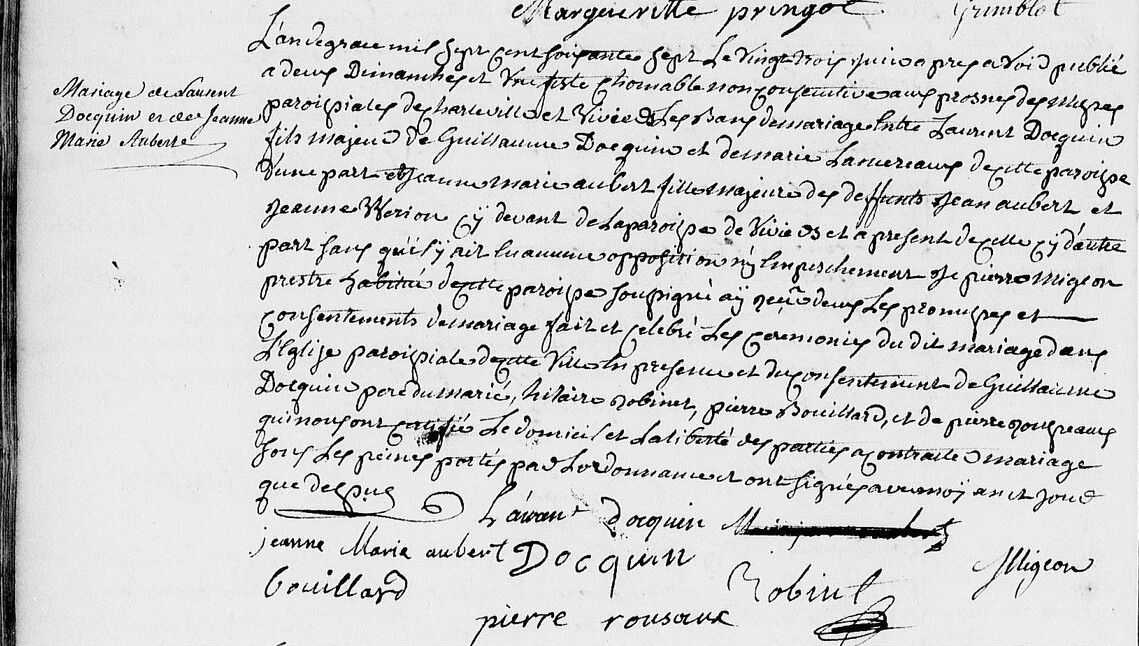 Margueritte pringot Grimblot
Mariage de Laurent
Docquin et de Jeanne
Marie Aubert
L'an de grace mil sept cent soixante sept Le vingt trois juin apres avoir publié
a deux Dimanches et une feste chomable non consecutive aux prosnes des Messes
paroissiales de charleville et Vivier Les Bans de mariage Entre Laurent Docquin
fils majeur de Guillaume Docquin et de marie Lamereaux de cette paroisse
d'une part et Jeanne marie aubert fille majeure des deffunts Jean aubert et
Jeanne Werion cy devant de La paroisse de Viviers et a present de cette cy d'autre
part sans qu'il s'y ait eu aucune opposition ny Empeschement Je pierre Migeon
prestre habitué de cette paroisse soussigné aÿ reçu d'eux Les promesses et
consentements de mariage fait et celebré Les ceremonies du dit mariage dans
L'Eglise paroissiale de cette Ville En presence et du consentement de Guillaume
Docquin pere du marié, hilaire Robinet, pierre Bouillard, et de pierre rousseaux
qui nous ont certifié Le domicil et La liberté des parties a contracter mariage
sous Les peines portés par L'ordonnance et ont signés avec moÿ an et jour
que dessus
Lauran docquin
jeanne Marie aubert Docquin Migeon
bouillard Robinet
pierre rousaux